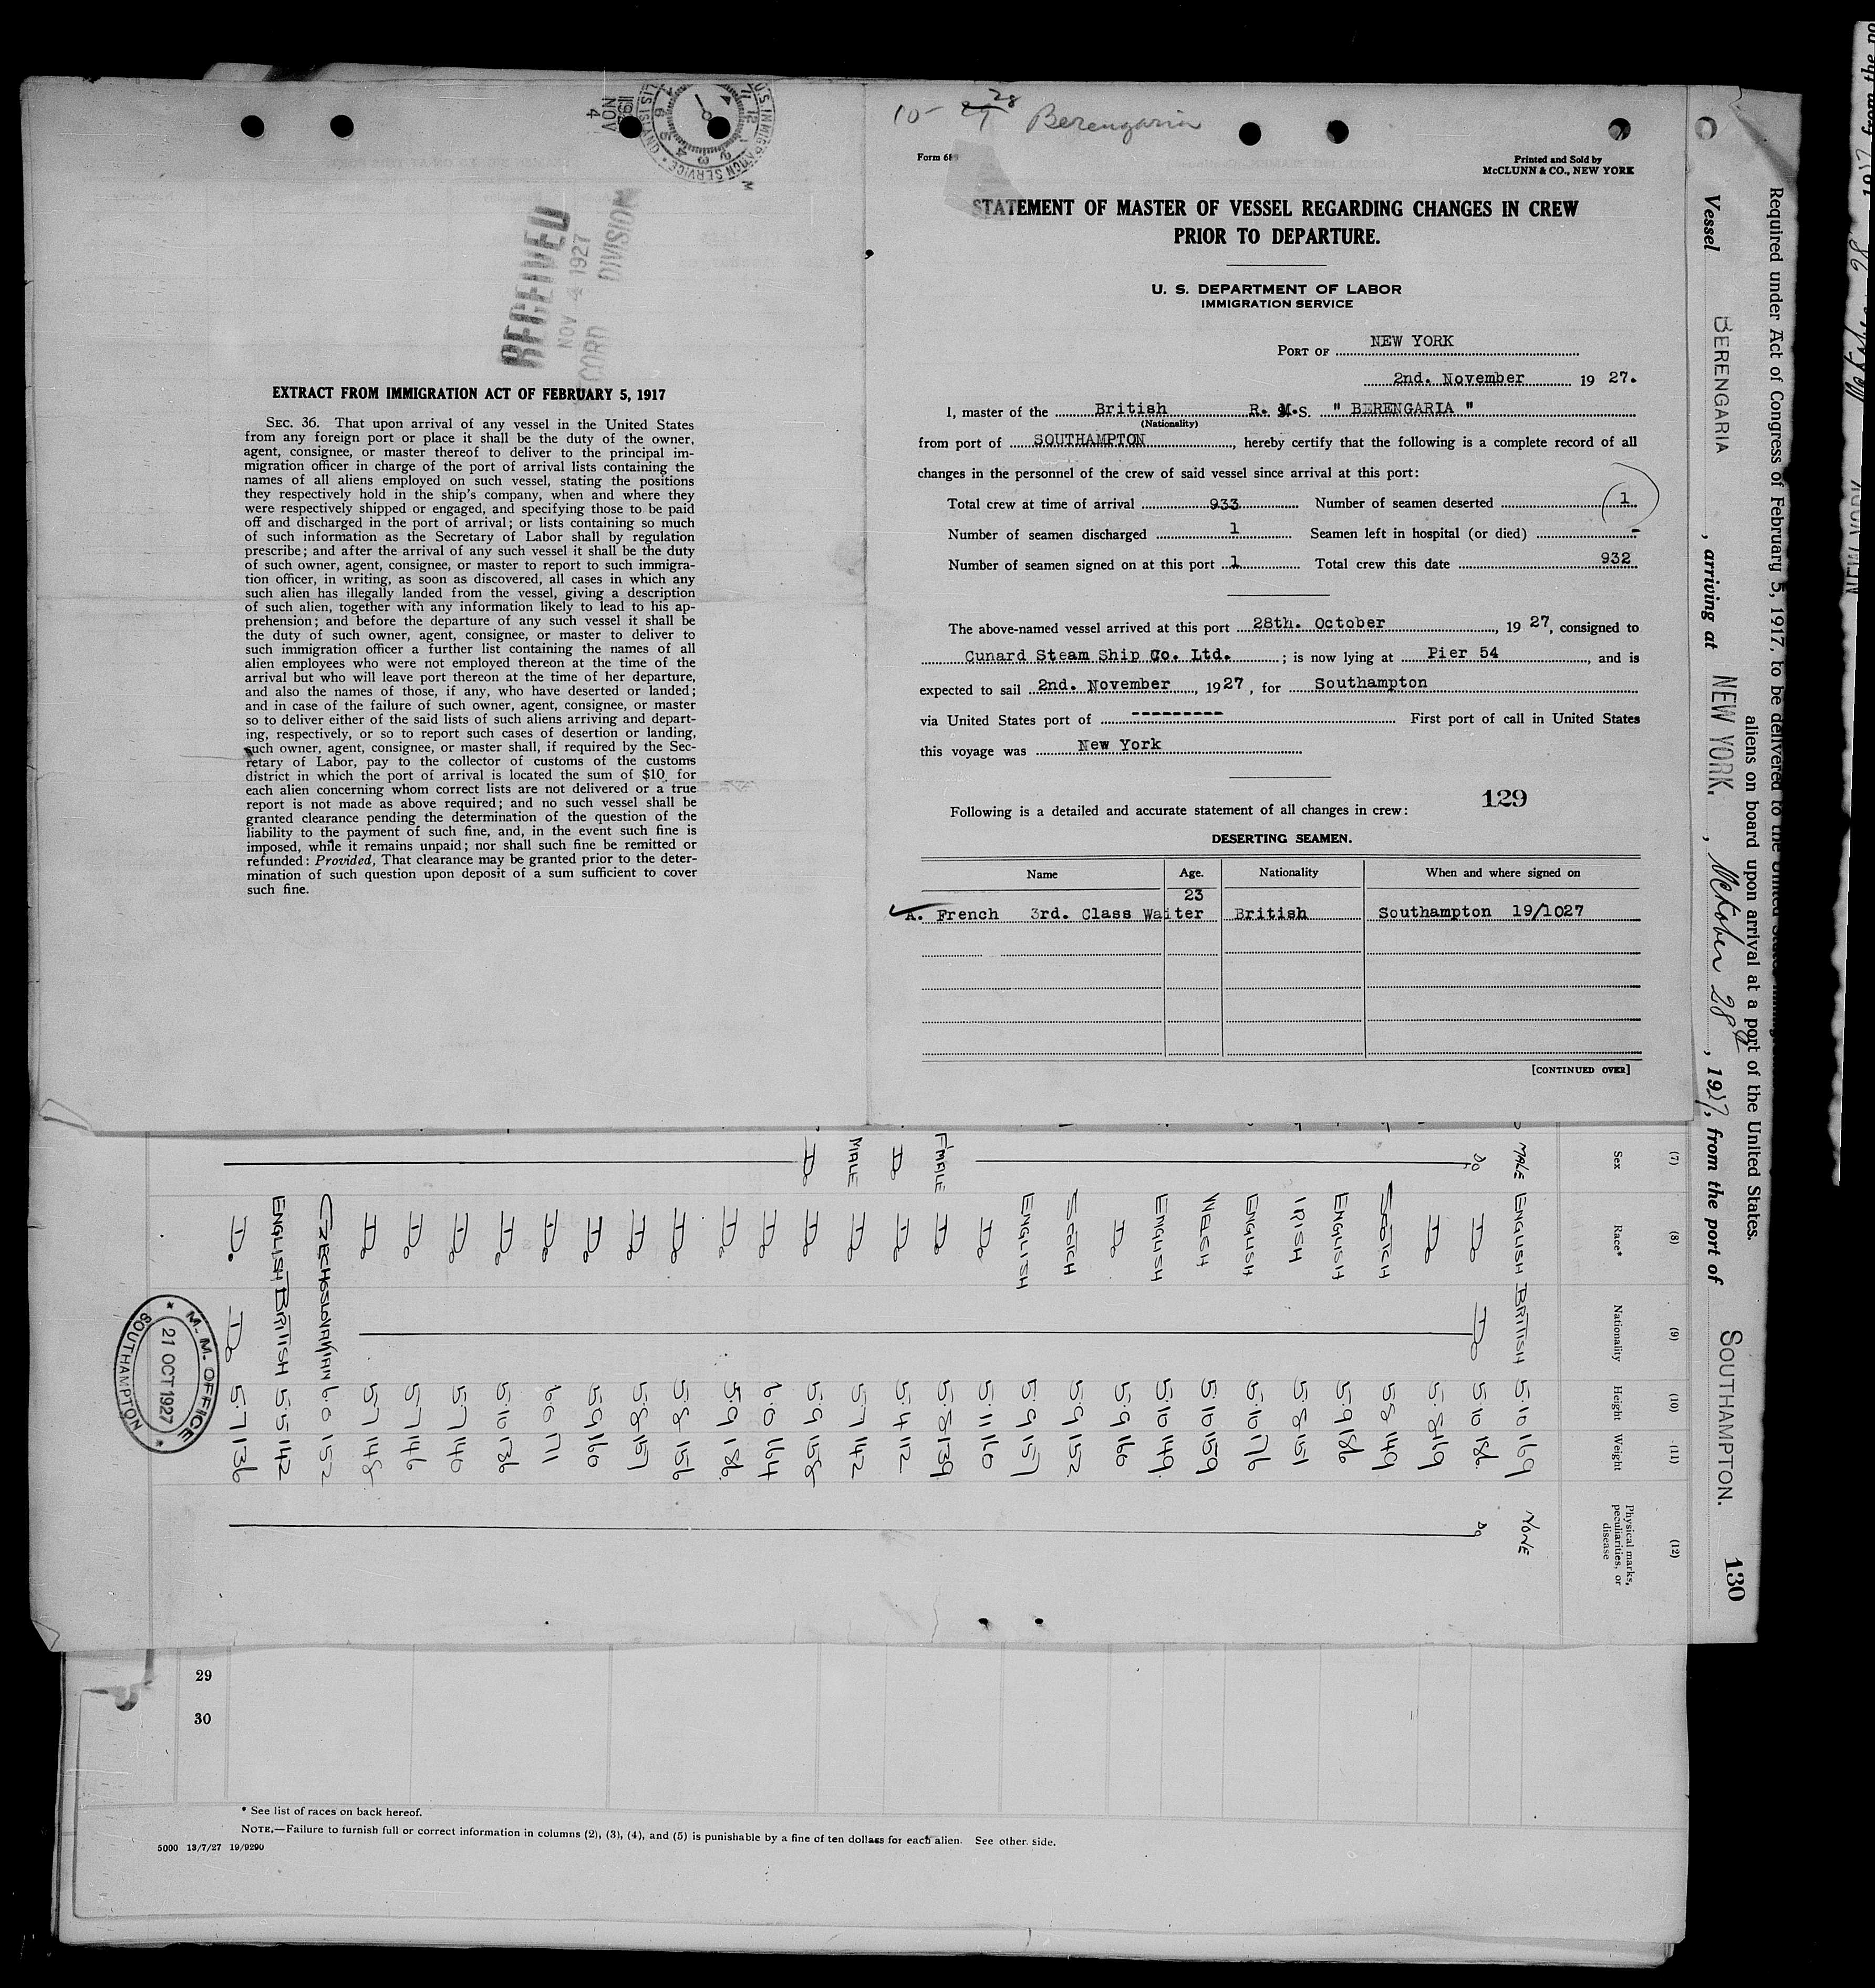 U.S. IMMIGRATION SERVICE
NOV
4
RECEIVED
NOV 4 1927
DIVISION
EXTRACT FROM IMMIGRATION ACT OF FEBRUARY 5, 1917
SEC. 36. That upon arrival of any vessel in the United States
from any foreign port or place it shall be the duty of the owner,
agent, consignee, or master thereof to deliver to the principal im-
migration officer in charge of the port of arrival lists containing the
names of all aliens employed on such vessel, stating the positions
they respectively hold in the ship's company, when and where they
were respectively shipped or engaged, and specifying those to be paid
off and discharged in the port of arrival; or lists containing so much
of such information as the Secretary of Labor shall by regulation
prescribe; and after the arrival of any such vessel it shall be the duty
of such owner, agent, consignee, or master to report to such immigra-
tion officer, in writing, as soon as discovered, all cases in which any
such alien has illegally landed from the vessel, giving a description
of such alien, together with any information likely to lead to his ap-
prehension; and before the departure of any such vessel it shall be
the duty of such owner, agent, consignee, or master to deliver to
such immigration officer a further list containing the names of all
alien employees who were not employed thereon at the time of the
arrival but who will leave port thereon at the time of her departure,
and also the names of those, if any, who have deserted or landed;
and in case of the failure of such owner, agent, consignee, or master
so to deliver either of the said lists of such aliens arriving and depart-
ing, respectively, or so to report such cases of desertion or landing,
such owner, agent, consignee, or master shall, if required by the Sec-
retary of Labor, pay to the collector of customs of the customs
district in which the port of arrival is located the sum of $10 for
each alien concerning whom correct lists are not delivered or a true
report is not made as above required; and no such vessel shall be
granted clearance pending the determination of the question of the
liability to the payment of such fine, and, in the event such fine is
imposed, while it remains unpaid; nor shall such fine be remitted or
refunded: Provided, That clearance may be granted prior to the deter-
mination of such question upon deposit of a sum sufficient to cover
such fine.
10- 28 Berengaria
Form 689
Printed and Sold by
McCLUNN & CO., NEW YORK
STATEMENT OF MASTER OF VESSEL REGARDING CHANGES IN CREW
PRIOR TO DEPARTURE.
U. S. DEPARTMENT OF LABOR
IMMIGRATION SERVICE
PORT OF NEW YORK
2nd. November 19 27.
I, master of the British R. M.S. " BERENGARIA "
(Nationality)
from port of SOUTHAMPTON, hereby certify that the following is a complete record of all
changes in the personnel of the crew of said vessel since arrival at this port:
Total crew at time of arrival 933 Number of seamen deserted 1
Number of seamen discharged 1 Seamen left in hospital (or died) -
Number of seamen signed on at this port 1 Total crew this date 932
The above-named vessel arrived at this port 28th. October, 19 27, consigned to
Cunard Steam Ship Co. Ltd. ; is now lying at Pier 54, and is
expected to sail 2nd. November, 19 27, for Southampton
via United States port of --------- First port of call in United States
this voyage was New York
129
Following is a detailed and accurate statement of all changes in crew:
DESERTING SEAMEN.
Name Age. Nationality When and where signed on
23
A. French 3rd. Class Waiter British Southampton 19/1027
[CONTINUED OVER]
Required under Act of Congress of February 5, 1917, to be delivered to the United States
aliens on board upon arrival at a port of the United States.
Vessel BERENGARIA, arriving at NEW YORK., October 28th, 1927, from the port of SOUTHAMPTON.
130
(7) (8) (9) (10) (11) (12)
Sex Race* Nationality Height Weight Physical marks, peculiarities, or disease
MALE ENGLISH BRITISH 5·10 169 NONE
Do Do Do 5·10 186 Do
Do 5·8 149
SCOTCH 5·8 149
ENGLISH 5·9 186
IRISH 5·8 151
ENGLISH 5·10 176
WELSH 5·10 159
ENGLISH 5·10 149
Do 5·9 166
SCOTCH 5·9 152
ENGLISH 5·9 157
Do 5·11 160
F'MALE Do 5·8 139
Do Do 5·4 112
MALE Do 5·7 142
Do Do 5·9 158
Do 6·0 164
Do 5·9 186
Do 5·8 156
Do 5·8 157
Do 5·9 160
Do 6·0 171
Do 5·10 136
Do 5·7 140
Do 5·7 146
Do 5·7 148
CZECHOSLOVAKIAN 6·0 152
ENGLISH BRITISH 5·5 142
Do. Do 5·7 136
M. M. OFFICE
21 OCT 1927
SOUTHAMPTON
29
30
* See list of races on back hereof.
NOTE.—Failure to furnish full or correct information in columns (2), (3), (4), and (5) is punishable by a fine of ten dollars for each alien. See other side.
5000 13/7/27 19/9290